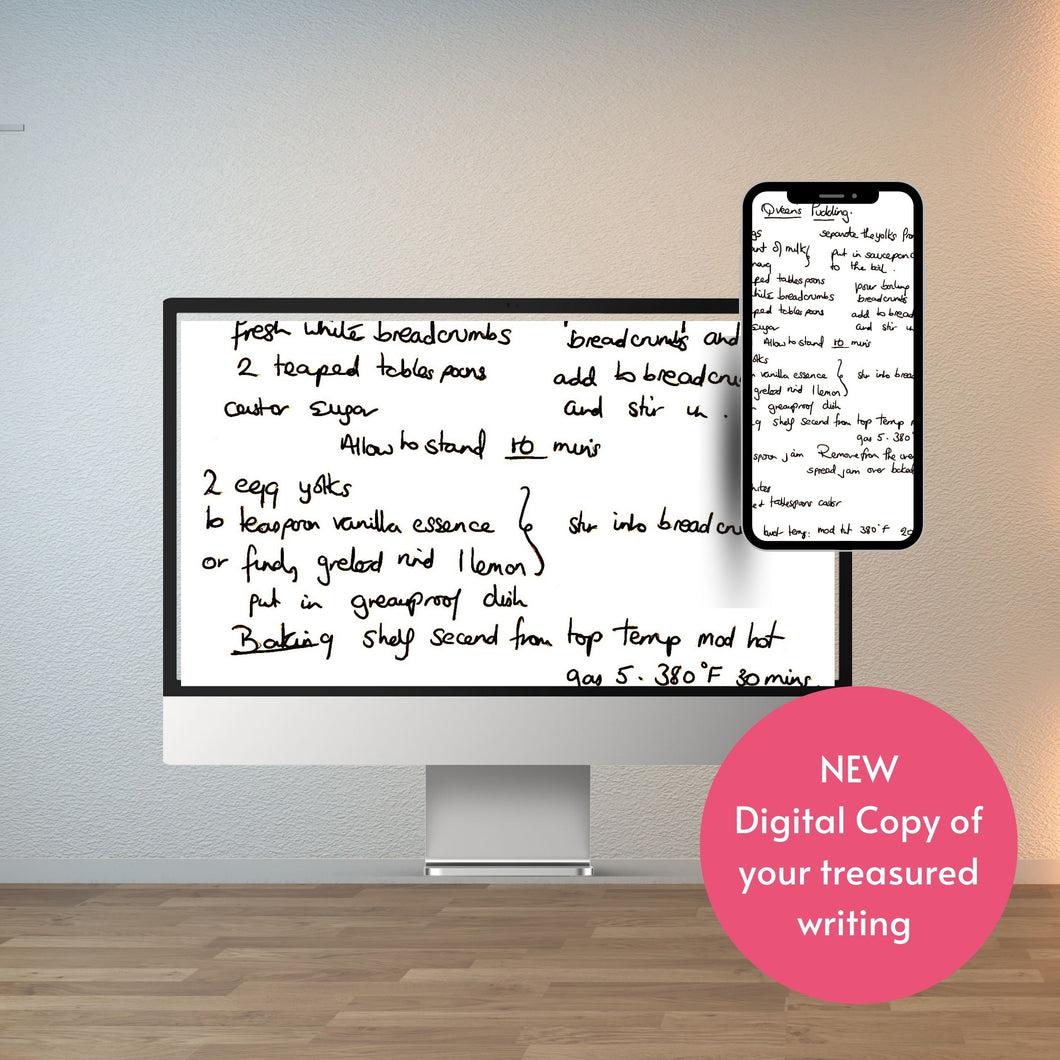 fresh white breadcrumbs 'breadcrumbs' and
2 teaped tablespoons add to breadcru
castor sugar and stir in .
Allow to stand 10 min's
2 egg yolks
teaspoon vanilla essence stir into breadcru
or finely grated rind 1 lemon
put in greaseproof dish
Baking shelf second from top temp mod hot
gas 5. 380°F 30 mins
Queens Pudding.
gs separate the yolks fro
unt of milk put in saucepan
to the boil.
ped tablespoons pour boiling
hite breadcrumbs breadcrumbs
ped tablespoons add to bread
sugar and stir in
Allow to stand 10 mins
olks
vanilla essence stir into bread
grated rind 1 lemon
greaseproof dish
g shelf second from top temp
gas 5. 380°
spoon jam Remove from the ove
spread jam over baked
hites
ed tablespoons castor
temp: mod hot 380°F 20
NEW
Digital Copy of
your treasured
writing